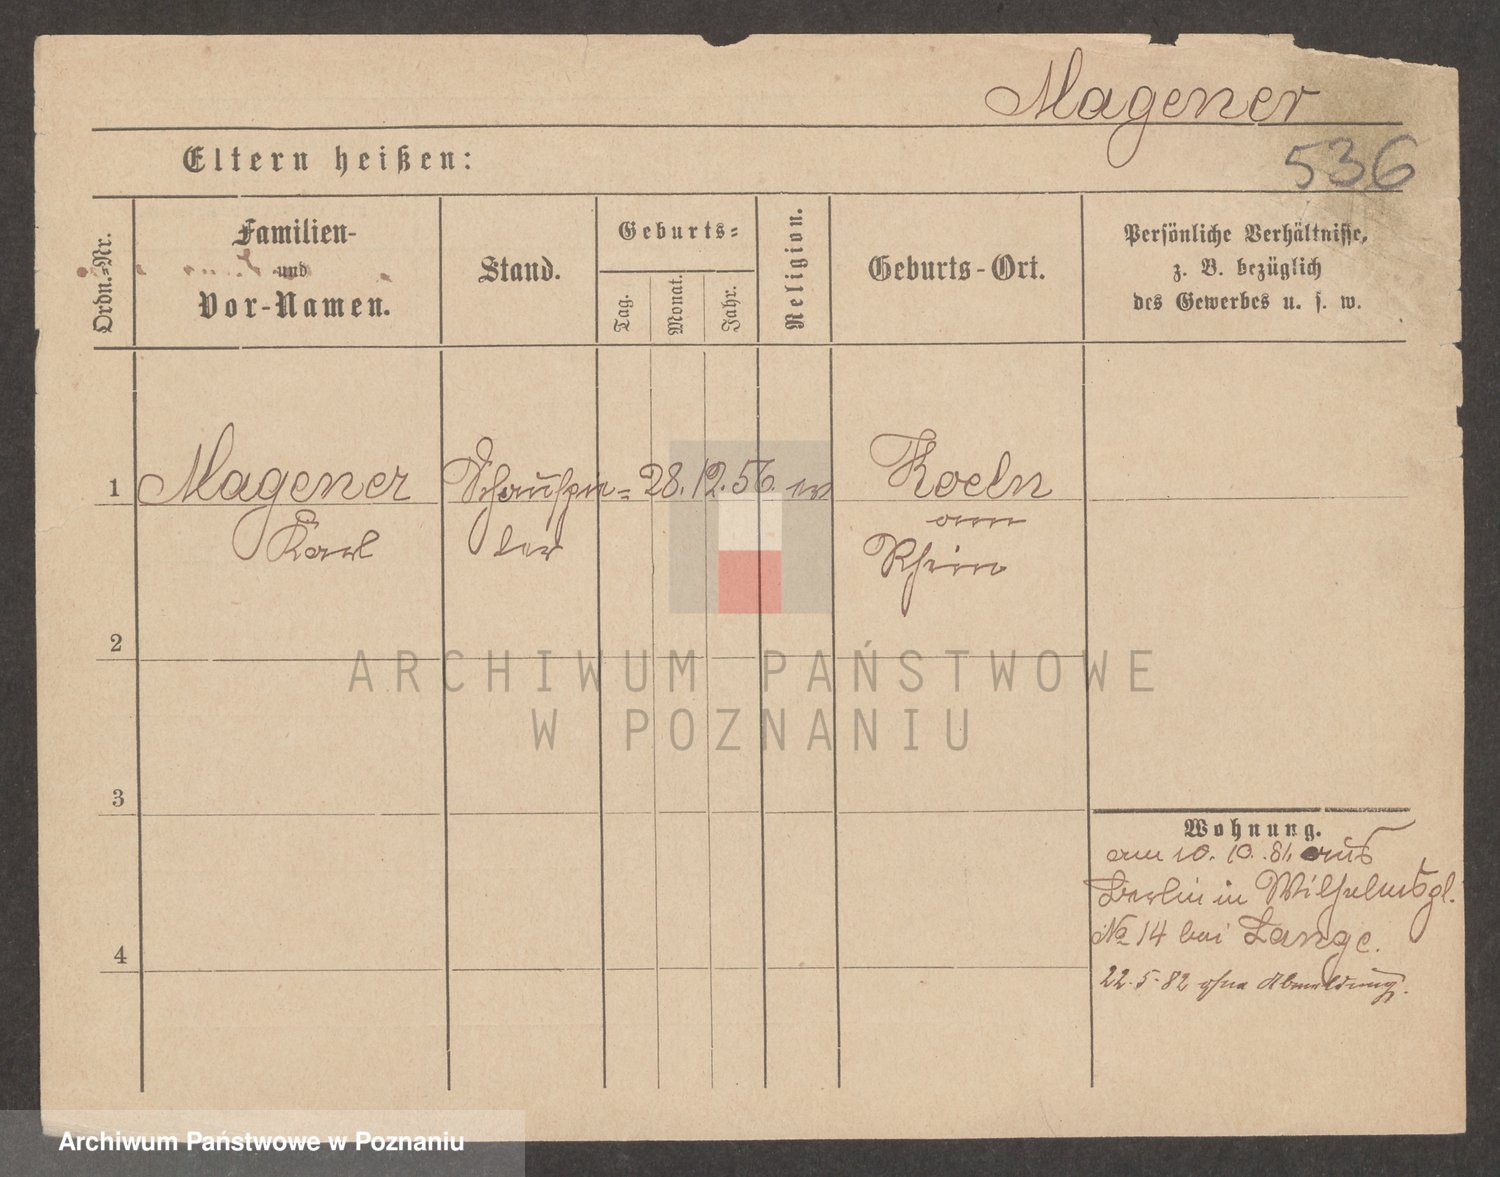 Magener
536
Eltern heißen:
Ordn.-Nr.
Familien-
und
Vor-Namen.
Stand.
Geburts-
Tag.
Monat.
Jahr.
Religion.
Geburts-Ort.
Persönliche Verhältnisse,
z. B. bezüglich
des Gewerbes u. s. w.
1
Magener
Karl
Schauspie-
ler
28. 12. 56. ev
Koeln
am
Rhein
2
ARCHIWUM PAŃSTWOWE
W POZNANIU
3
4
Wohnung.
am 10. 10. 81. aus
Berlin in Wilhelmspl.
No 14 bei Lange.
22. 5. 82 ohne Abmeldung.
Archiwum Państwowe w Poznaniu